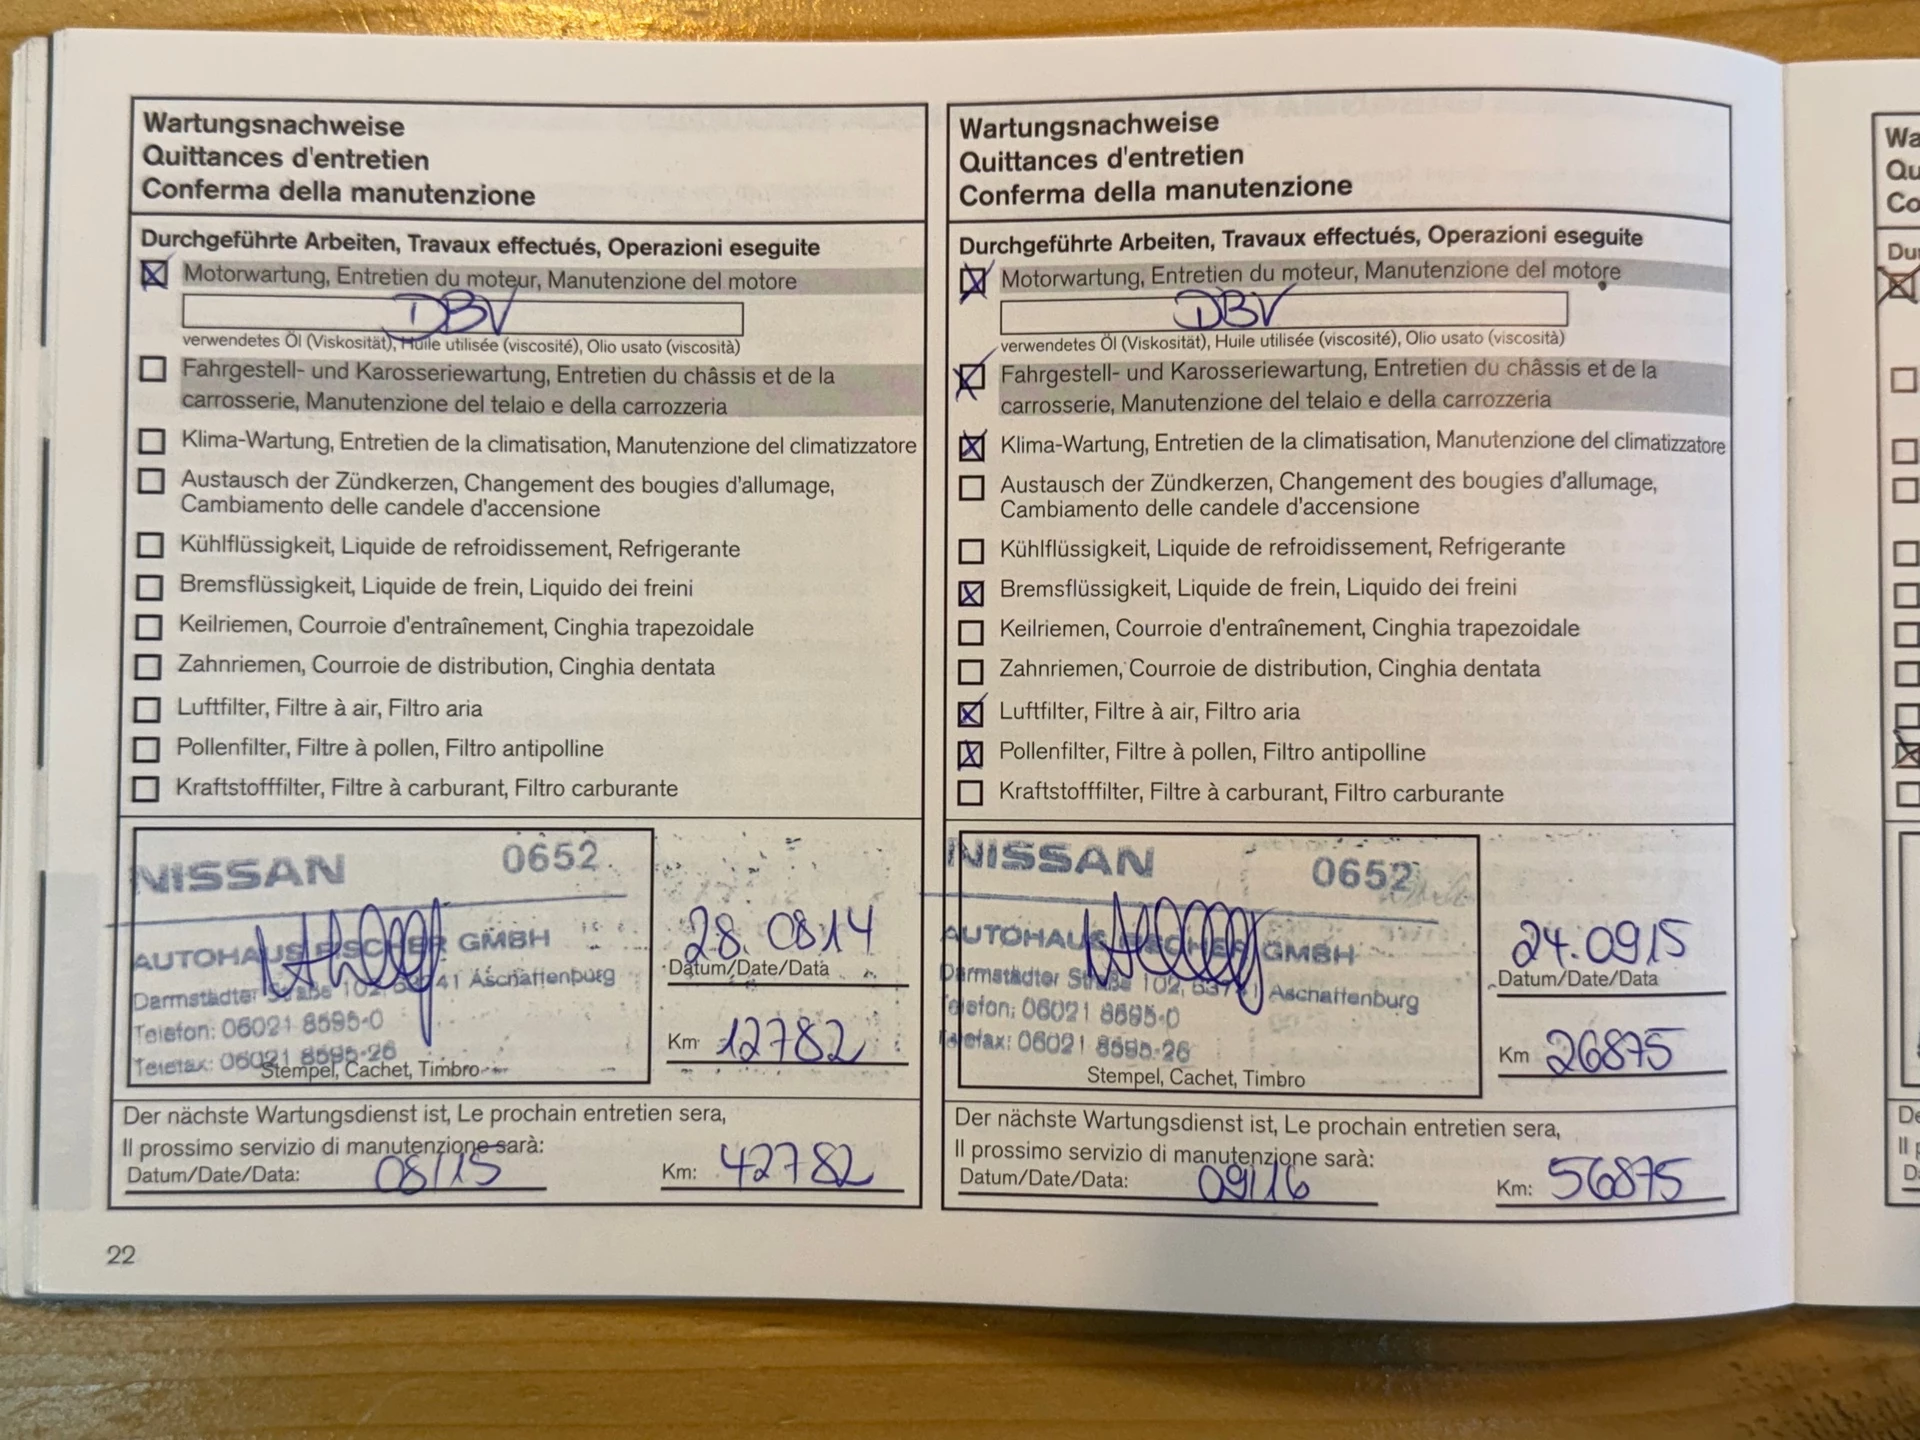 Wartungsnachweise
Quittances d'entretien
Conferma della manutenzione
Durchgeführte Arbeiten, Travaux effectués, Operazioni eseguite
Motorwartung, Entretien du moteur, Manutenzione del motore
DBV
verwendetes Öl (Viskosität), Huile utilisée (viscosité), Olio usato (viscosità)
Fahrgestell- und Karosseriewartung, Entretien du châssis et de la
carrosserie, Manutenzione del telaio e della carrozzeria
Klima-Wartung, Entretien de la climatisation, Manutenzione del climatizzatore
Austausch der Zündkerzen, Changement des bougies d'allumage,
Cambiamento delle candele d'accensione
Kühlflüssigkeit, Liquide de refroidissement, Refrigerante
Bremsflüssigkeit, Liquide de frein, Liquido dei freini
Keilriemen, Courroie d'entraînement, Cinghia trapezoidale
Zahnriemen, Courroie de distribution, Cinghia dentata
Luftfilter, Filtre à air, Filtro aria
Pollenfilter, Filtre à pollen, Filtro antipolline
Kraftstofffilter, Filtre à carburant, Filtro carburante
NISSAN 0652
AUTOHAUS FISCHER GMBH
Darmstädter Straße 102, 63741 Aschaffenburg
Telefon: 06021 8595-0
Telefax: 06021 8595-26
Stempel, Cachet, Timbro
28.08.14
Datum/Date/Data
Km 12782
Der nächste Wartungsdienst ist, Le prochain entretien sera,
Il prossimo servizio di manutenzione sarà:
Datum/Date/Data: 08/15 Km: 42782
22
Wartungsnachweise
Quittances d'entretien
Conferma della manutenzione
Durchgeführte Arbeiten, Travaux effectués, Operazioni eseguite
Motorwartung, Entretien du moteur, Manutenzione del motore
DBV
verwendetes Öl (Viskosität), Huile utilisée (viscosité), Olio usato (viscosità)
Fahrgestell- und Karosseriewartung, Entretien du châssis et de la
carrosserie, Manutenzione del telaio e della carrozzeria
Klima-Wartung, Entretien de la climatisation, Manutenzione del climatizzatore
Austausch der Zündkerzen, Changement des bougies d'allumage,
Cambiamento delle candele d'accensione
Kühlflüssigkeit, Liquide de refroidissement, Refrigerante
Bremsflüssigkeit, Liquide de frein, Liquido dei freini
Keilriemen, Courroie d'entraînement, Cinghia trapezoidale
Zahnriemen, Courroie de distribution, Cinghia dentata
Luftfilter, Filtre à air, Filtro aria
Pollenfilter, Filtre à pollen, Filtro antipolline
Kraftstofffilter, Filtre à carburant, Filtro carburante
NISSAN 0652
AUTOHAUS FISCHER GMBH
Darmstädter Straße 102, 63741 Aschaffenburg
Telefon: 06021 8595-0
Telefax: 06021 8595-26
Stempel, Cachet, Timbro
24.0915
Datum/Date/Data
Km 26875
Der nächste Wartungsdienst ist, Le prochain entretien sera,
Il prossimo servizio di manutenzione sarà:
Datum/Date/Data: 09/16 Km: 56875